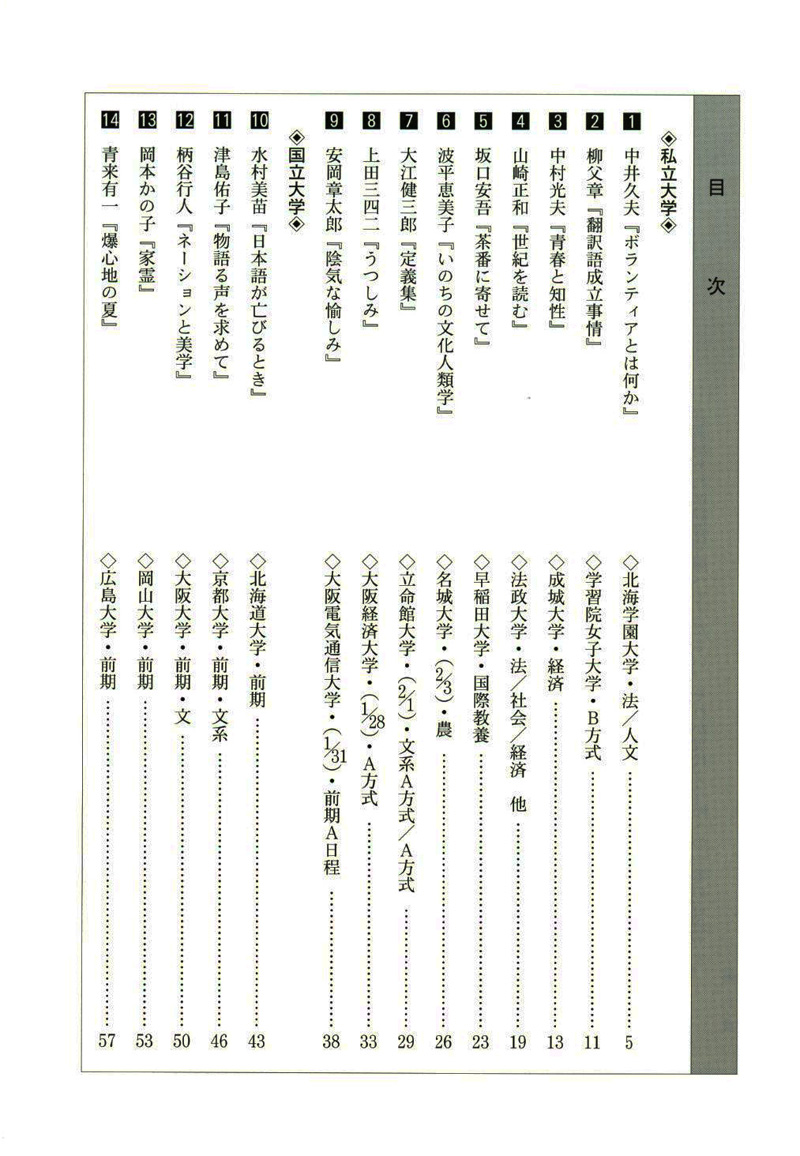 目次
◈私立大学◈
1 中井久夫『ボランティアとは何か』 ◇北海学園大学・法／人文 5
2 柳父章『翻訳語成立事情』 ◇学習院女子大学・B方式 11
3 中村光夫『青春と知性』 ◇成城大学・経済 13
4 山崎正和『世紀を読む』 ◇法政大学・法／社会／経済 他 19
5 坂口安吾『茶番に寄せて』 ◇早稲田大学・国際教養 23
6 波平恵美子『いのちの文化人類学』 ◇名城大学・(2/3)・農 26
7 大江健三郎『定義集』 ◇立命館大学・(2/1)・文系A方式／A方式 29
8 上田三四二『うつしみ』 ◇大阪経済大学・(1/28)・A方式 33
9 安岡章太郎『陰気な愉しみ』 ◇大阪電気通信大学・(1/31)・前期A日程 38
◈国立大学◈
10 水村美苗『日本語が亡びるとき』 ◇北海道大学・前期 43
11 津島佑子『物語る声を求めて』 ◇京都大学・前期・文系 46
12 柄谷行人『ネーションと美学』 ◇大阪大学・前期・文 50
13 岡本かの子『家霊』 ◇岡山大学・前期 53
14 青来有一『爆心地の夏』 ◇広島大学・前期 57